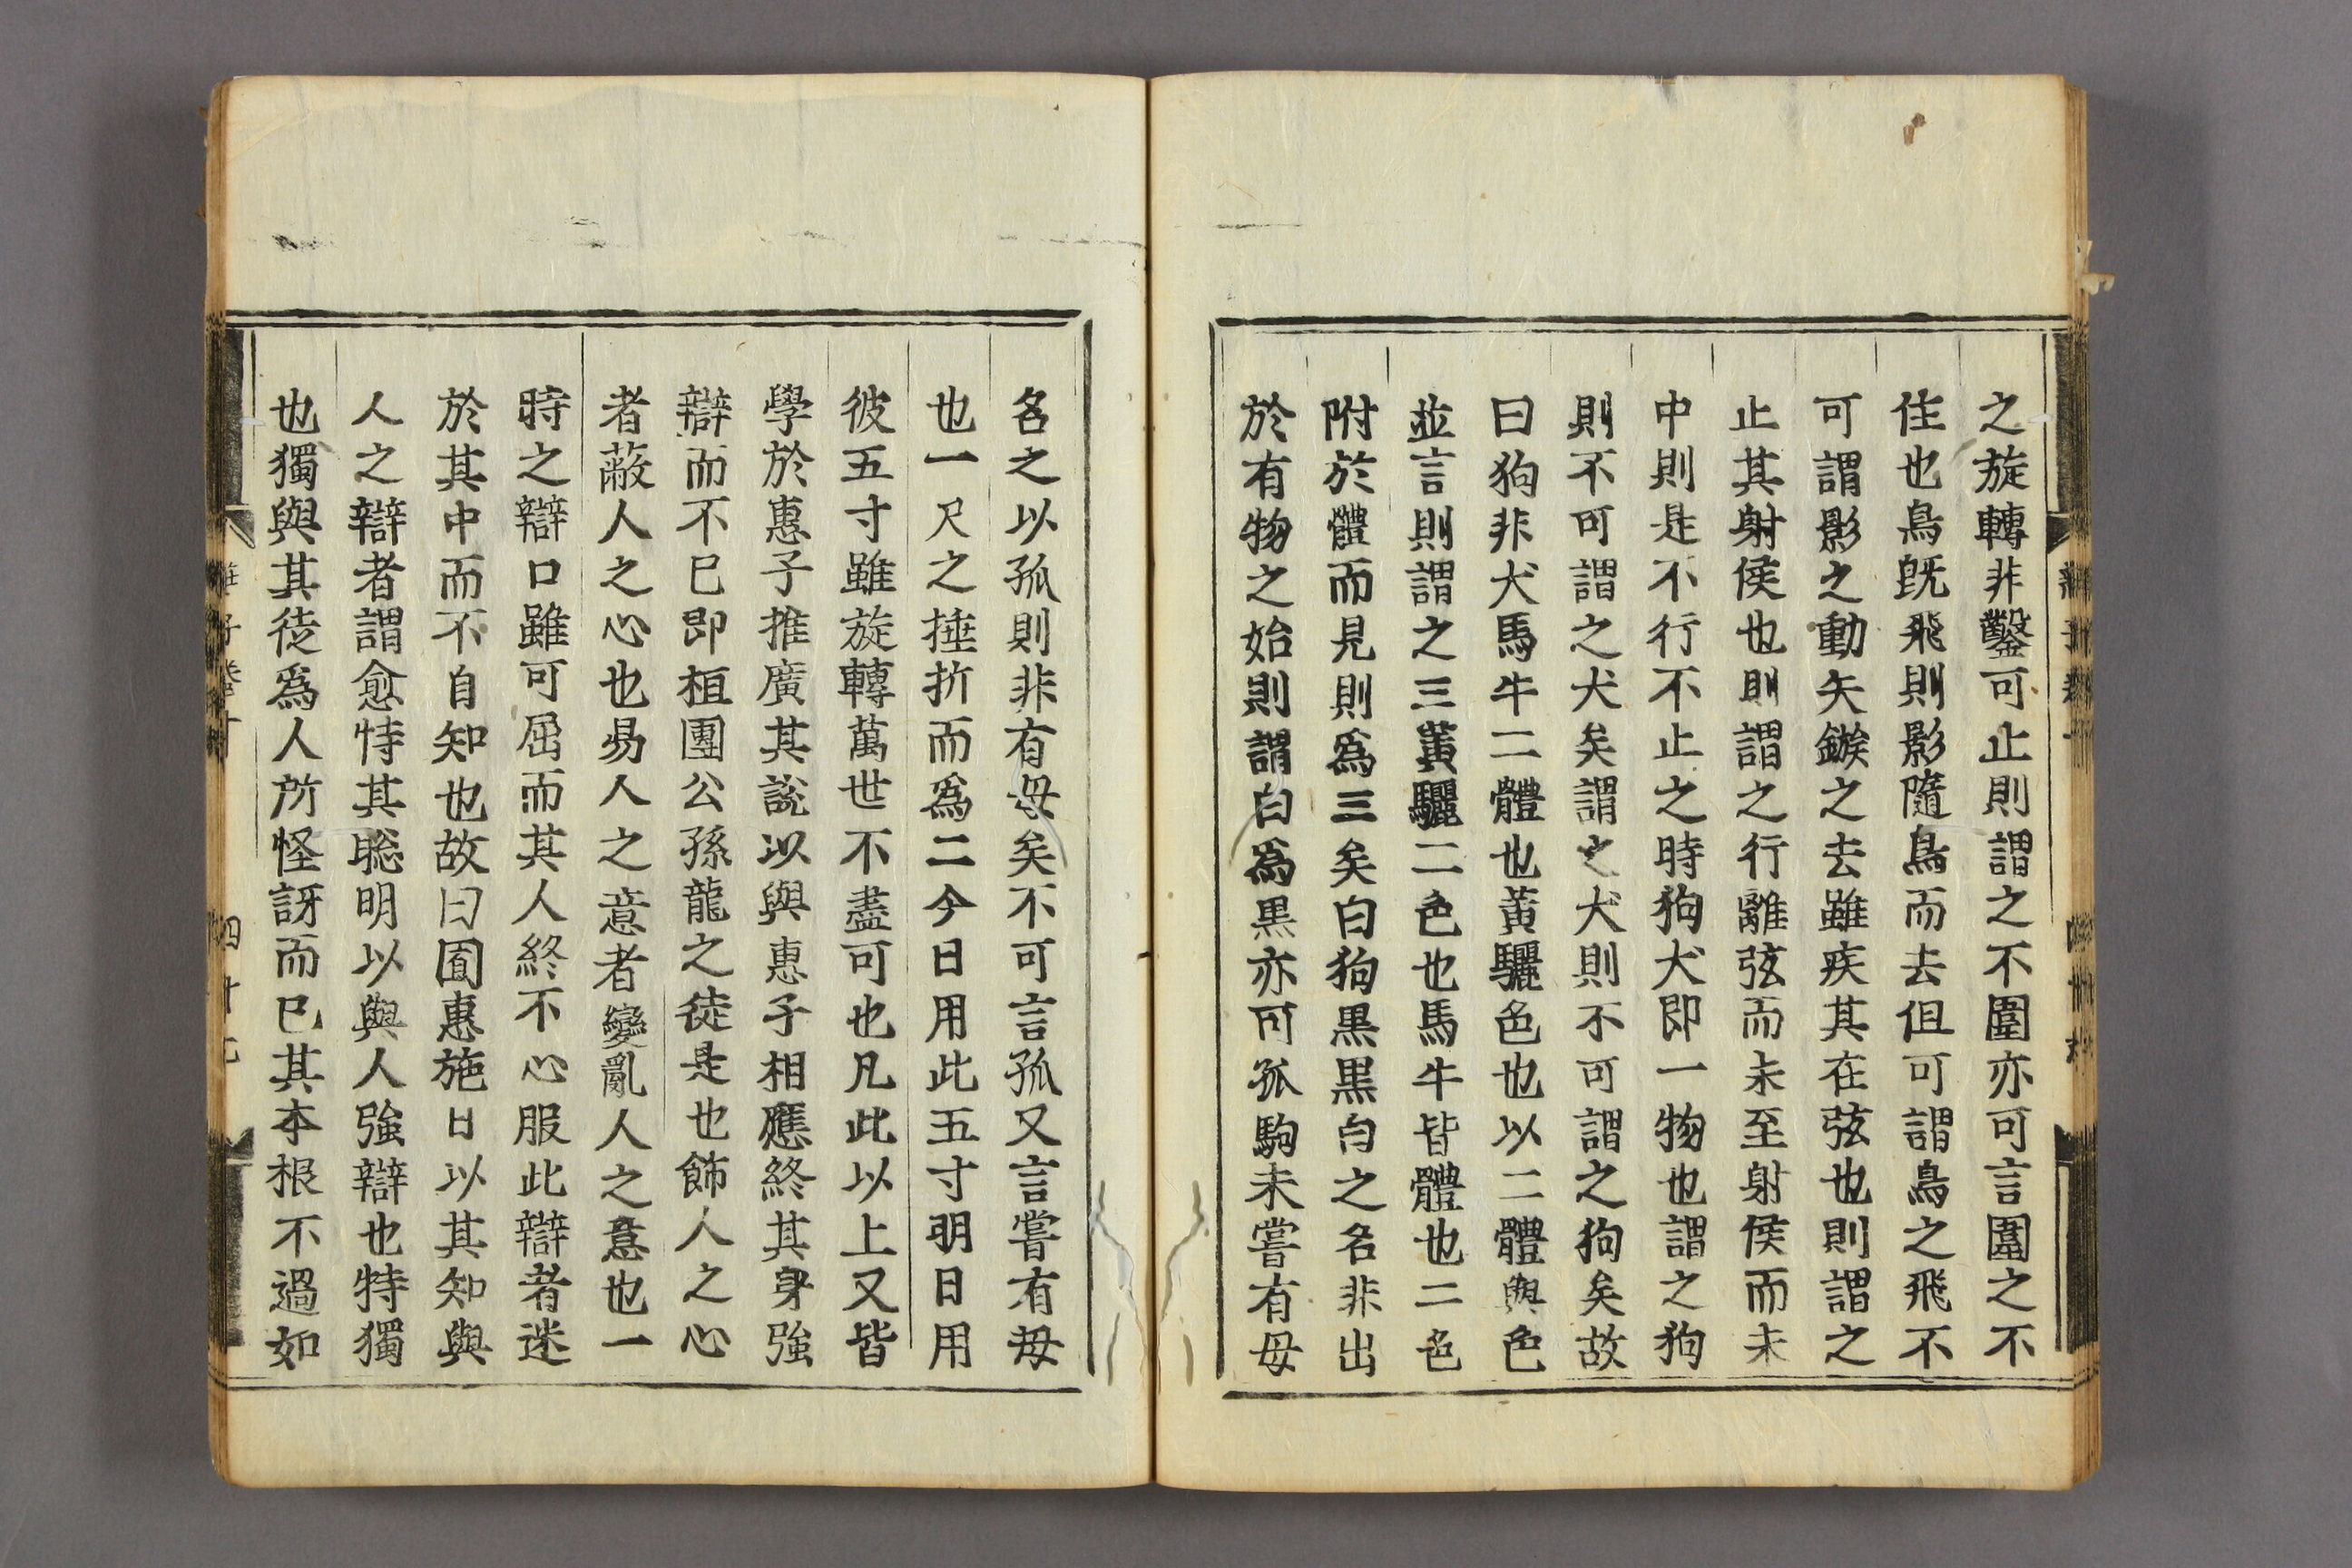 之旋轉非鑿可止則謂之不圍亦可言圍之不
住也鳥旣飛則影隨鳥而去但可謂鳥之飛不
可謂影之動矢鏃之去雖疾其在弦也則謂之
止其射侯也則謂之行離弦而未至射侯而未
中則是不行不止之時狗犬即一物也謂之狗
則不可謂之犬矣謂之犬則不可謂之狗矣故
曰狗非犬馬牛二體也黃驪色也以二體與色
並言則謂之三黃驪二色也馬牛皆體也二色
附於體而見則爲三矣白狗黑黑白之名非出
於有物之始則謂白爲黑亦可孤駒未嘗有母
名之以孤則非有母矣不可言孤又言嘗有母
也一尺之捶折而爲二今日用此五寸明日用
彼五寸雖旋轉萬世不盡可也凡此以上又皆
學於惠子推廣其說以與惠子相應終其身強
辯而不已即桓團公孫龍之徒是也飾人之心
者蔽人之心也易人之意者變亂人之意也一
時之辯口雖可屈而其人終不心服此辯者迷
於其中而不自知也故曰囿惠施日以其知與
人之辯者謂愈恃其聡明以與人強辯也特獨
也獨與其徒爲人所怪訝而已其本根不過如
莊子卷十
四十七